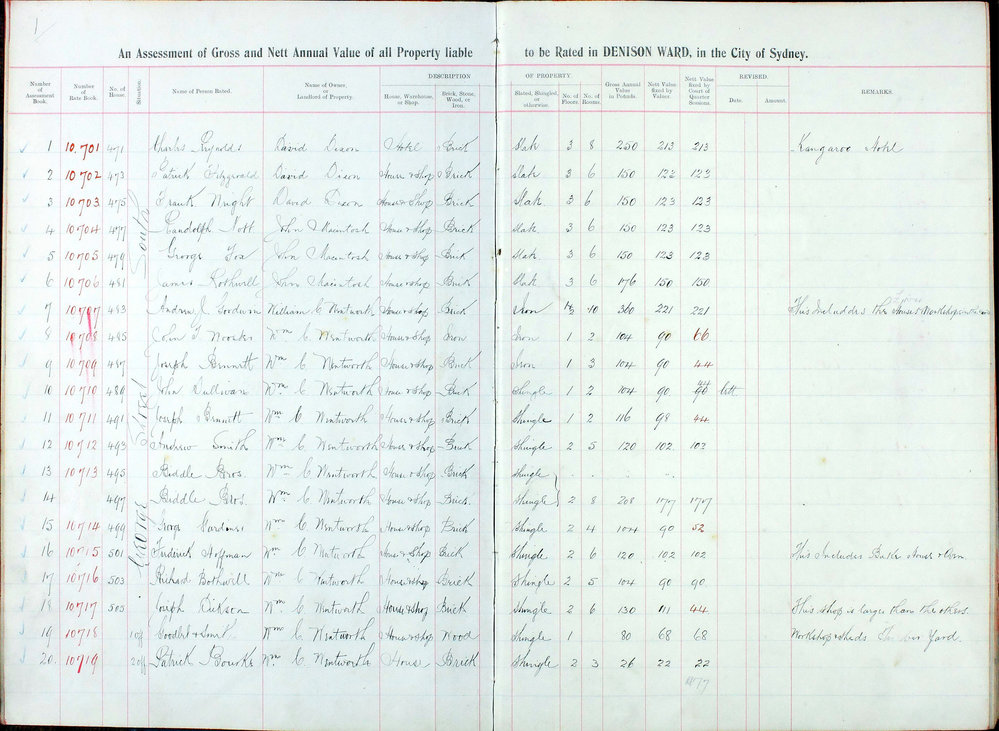 1/
An Assessment of Gross and Nett Annual Value of all Property liable to be Rated in DENISON WARD, in the City of Sydney.
Number of Assessment Book. Number of Rate Book. No. of House. Situation. Name of Person Rated. Name of Owner, or Landlord of Property. DESCRIPTION OF PROPERTY House, Warehouse, or Shop. Brick, Stone, Wood, or Iron. Slated, Shingled, or otherwise. No. of Floors. No. of Rooms. Gross Annual Value in Pounds. Nett Value fixed by Valuer. Nett Value fixed by Court of Quarter Sessions. REVISED. Date. Amount. REMARKS.
George Street South
1 10.701 471 Charles Reynolds David Dixon Hotel Brick Slate 3 8 250 213 213 Kangaroo Hotel
2 10702 473 Patrick Fitzgerald David Dixon House & Shop Brick Slate 3 6 150 123 123
3 10703 475 Frank Wright David Dixon House & Shop Brick Slate 3 6 150 123 123
4 10704 477 Randolph Nott John Macintosh House & Shop Brick Slate 3 6 150 123 123
5 10705 479 George Fox John Macintosh House & Shop Brick Slate 3 6 150 123 123
6 10706 481 James Rothwell John Macintosh House & Shop Brick Slate 3 6 176 150 150
7 10707 483 Andrew J Goodwin William C Wentworth House & Shop Brick Iron 10 360 221 221 This Includes House & Workshop
8 10708 485 John T Wm C Wentworth House & Shop Iron Iron 1 2 104 90 66
9 10709 487 Joseph Bennett Wm C Wentworth House & Shop Brick Iron 1 3 104 90 44
10 10710 489 John Sullivan Wm C Wentworth House & Shop Brick Shingle 1 2 104 90 90 44
11 10711 491 Joseph Bennett Wm C Wentworth House & Shop Brick Shingle 1 2 116 98 44
12 10712 493 Andrew Smith Wm C Wentworth House & Shop Brick Shingle 2 5 120 102 102
13 10713 495 Biddle Bros. Wm C Wentworth House & Shop Brick Shingle
14 497 Biddle Bros. Wm C Wentworth House & Shop Brick Shingle 2 8 208 177 177
15 10714 499 George Gardiner Wm C Wentworth House & Shop Brick Shingle 2 4 104 90 52
16 10715 501 Frederick Hoffman Wm C Wentworth House & Shop Brick Shingle 2 6 120 102 102 This Includes Bake House & Oven
17 10716 503 Richard Bothwill Wm C Wentworth House & Shop Brick Shingle 2 5 104 90 90
18 10717 505 Joseph Dickson Wm C Wentworth House & Shop Brick Shingle 2 6 130 111 44 This Shop is larger than the others.
19 10718 1off Wm C Wentworth House & Shop Wood Shingle 1 80 68 68 Workshop & Sheds Yard.
20 10719 2off Patrick Bourke Wm C Wentworth House Brick Shingle 2 3 26 22 22